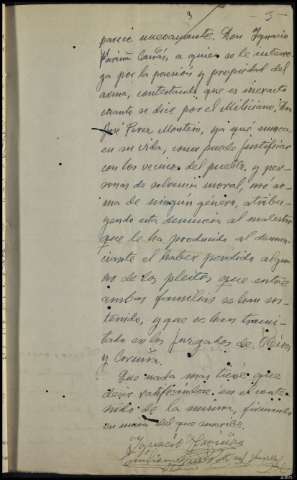 3
5
parece nuevamente. Don Ignacio
Cañás, a quien se le interro-
ga por la posesión y propiedad del
arma, contestando que es inexacto
cuanto se dice por el Miliciano, Don
José Perez Monteiro, ya que nunca
en su vida, como puede justificar
con los vecinos del pueblo, y per-
sonas de solvencia moral, usó ar-
ma de ningún género, atribu-
yendo esta denuncia al malestar
que le ha producido al denun-
ciante el haber perdido algu-
no de los pleitos que entre
ambas familias se han sos-
tenido, y que se han trami-
tado en los Juzgados de
y Coruña.
Que nada más tiene que
decir ratificándose en el conte-
nido de la misma, firmando
en unión del que
Ignacio